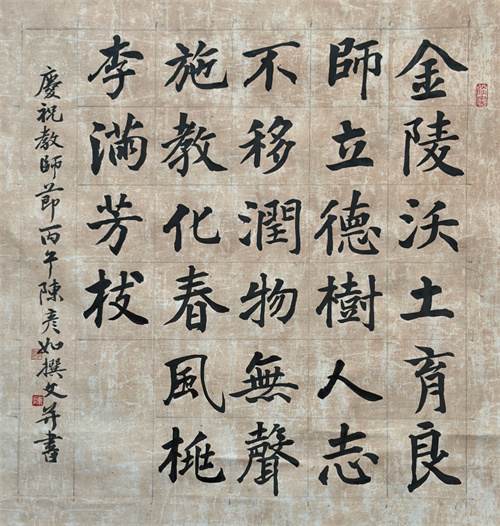 金陵沃土育良
師立德樹人志
不移潤物無聲
施教化春風桃
李滿芳枝
慶祝教師節丙午陳彥如撰文并書